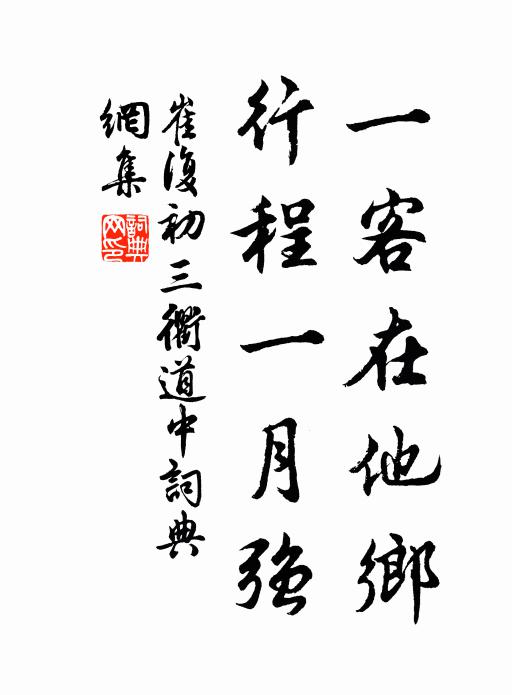 一客在他鄉
行程一月強
崔復初三衢道中詞典
網集
詞典
网印